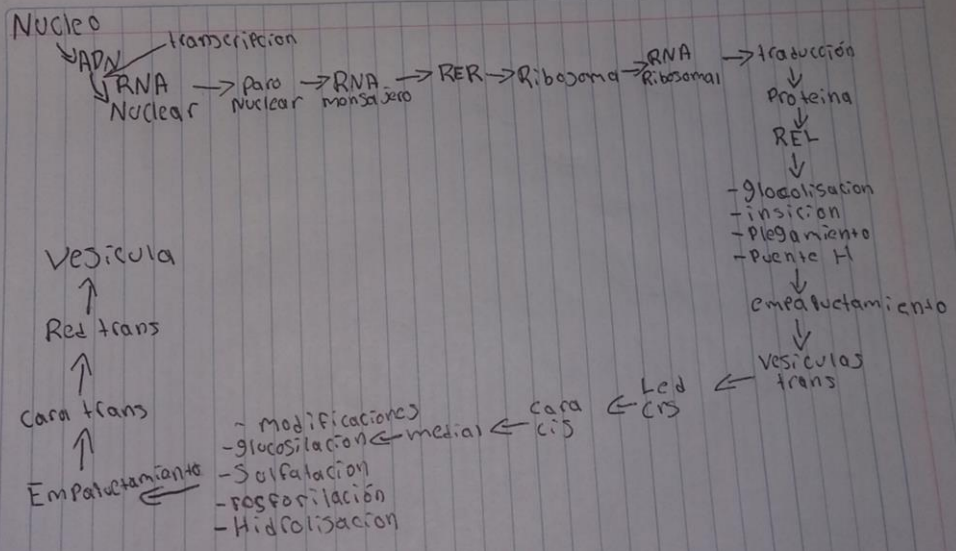 Nucleo
ADN
transcripcion
RNA
Nuclear
Paro
Nuclear
RNA
monsajero
RER
Ribosoma
RNA
Ribosomal
traducción
Proteina
REL
- glocolisacion
- insicion
- Plegamiento
- Puente H
empaluctamiento
Vesiculas
trans
Led
crs
Cara
cis
medial
- modificaciones
- glucosilacion
- Solfatacion
- fosforilación
- Hidrolisacion
Empaluctamianto
Cara trans
Red trans
Vesicula